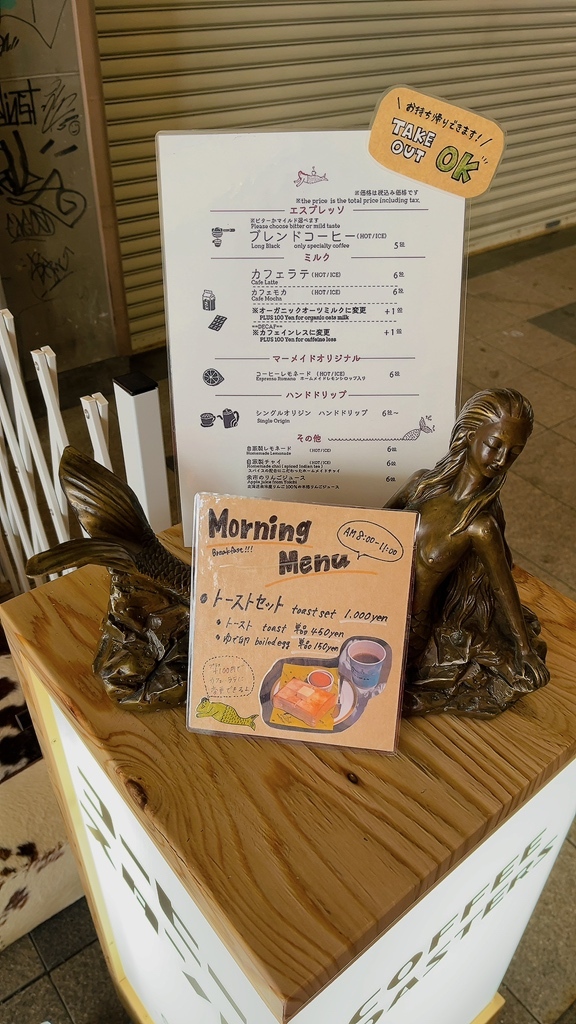 \ お持ち帰りできます! /
TAKE
OUT OK
※価格は税込み価格です
※the price is the total price including tax.
エスプレッソ
※ビターかマイルド選べます
Please choose bitter or mild taste
ブレンドコーヒー (HOT/ICE)
Long Black only specialty coffee 5
ミルク
カフェラテ (HOT/ICE) 6
Cafe Latte
カフェモカ (HOT/ICE) 6
Cafe Mocha
※オーガニックオーツミルクに変更 +1
PLUS 100 Yen for organic oats milk
**DECAF**
※カフェインレスに変更 +1
PLUS 100 Yen for caffeine less
マーメイドオリジナル
コーヒーレモネード (HOT/ICE) 6
Espresso Romano ホームメイドレモンシロップ入り
ハンドドリップ
シングルオリジン ハンドドリップ 6 ~
Single Origin
その他
自家製レモネード (HOT/ICE) 6
Homemade Lemonade
自家製チャイ (HOT/ICE) 6
Homemade chai (spiced Indian tea)
スパイスの配合にこだわったホームメイドチャイ
余市のりんごジュース 6
Apple juice from Yoichi
Morning
Breakfast!!!
Menu
AM 8:00-11:00
• トーストセット toast set 1.000yen
• トースト toast 単品 450yen
• ゆで卵 boiled egg 単品 150yen
コーヒー
COFFEE
ROASTERS